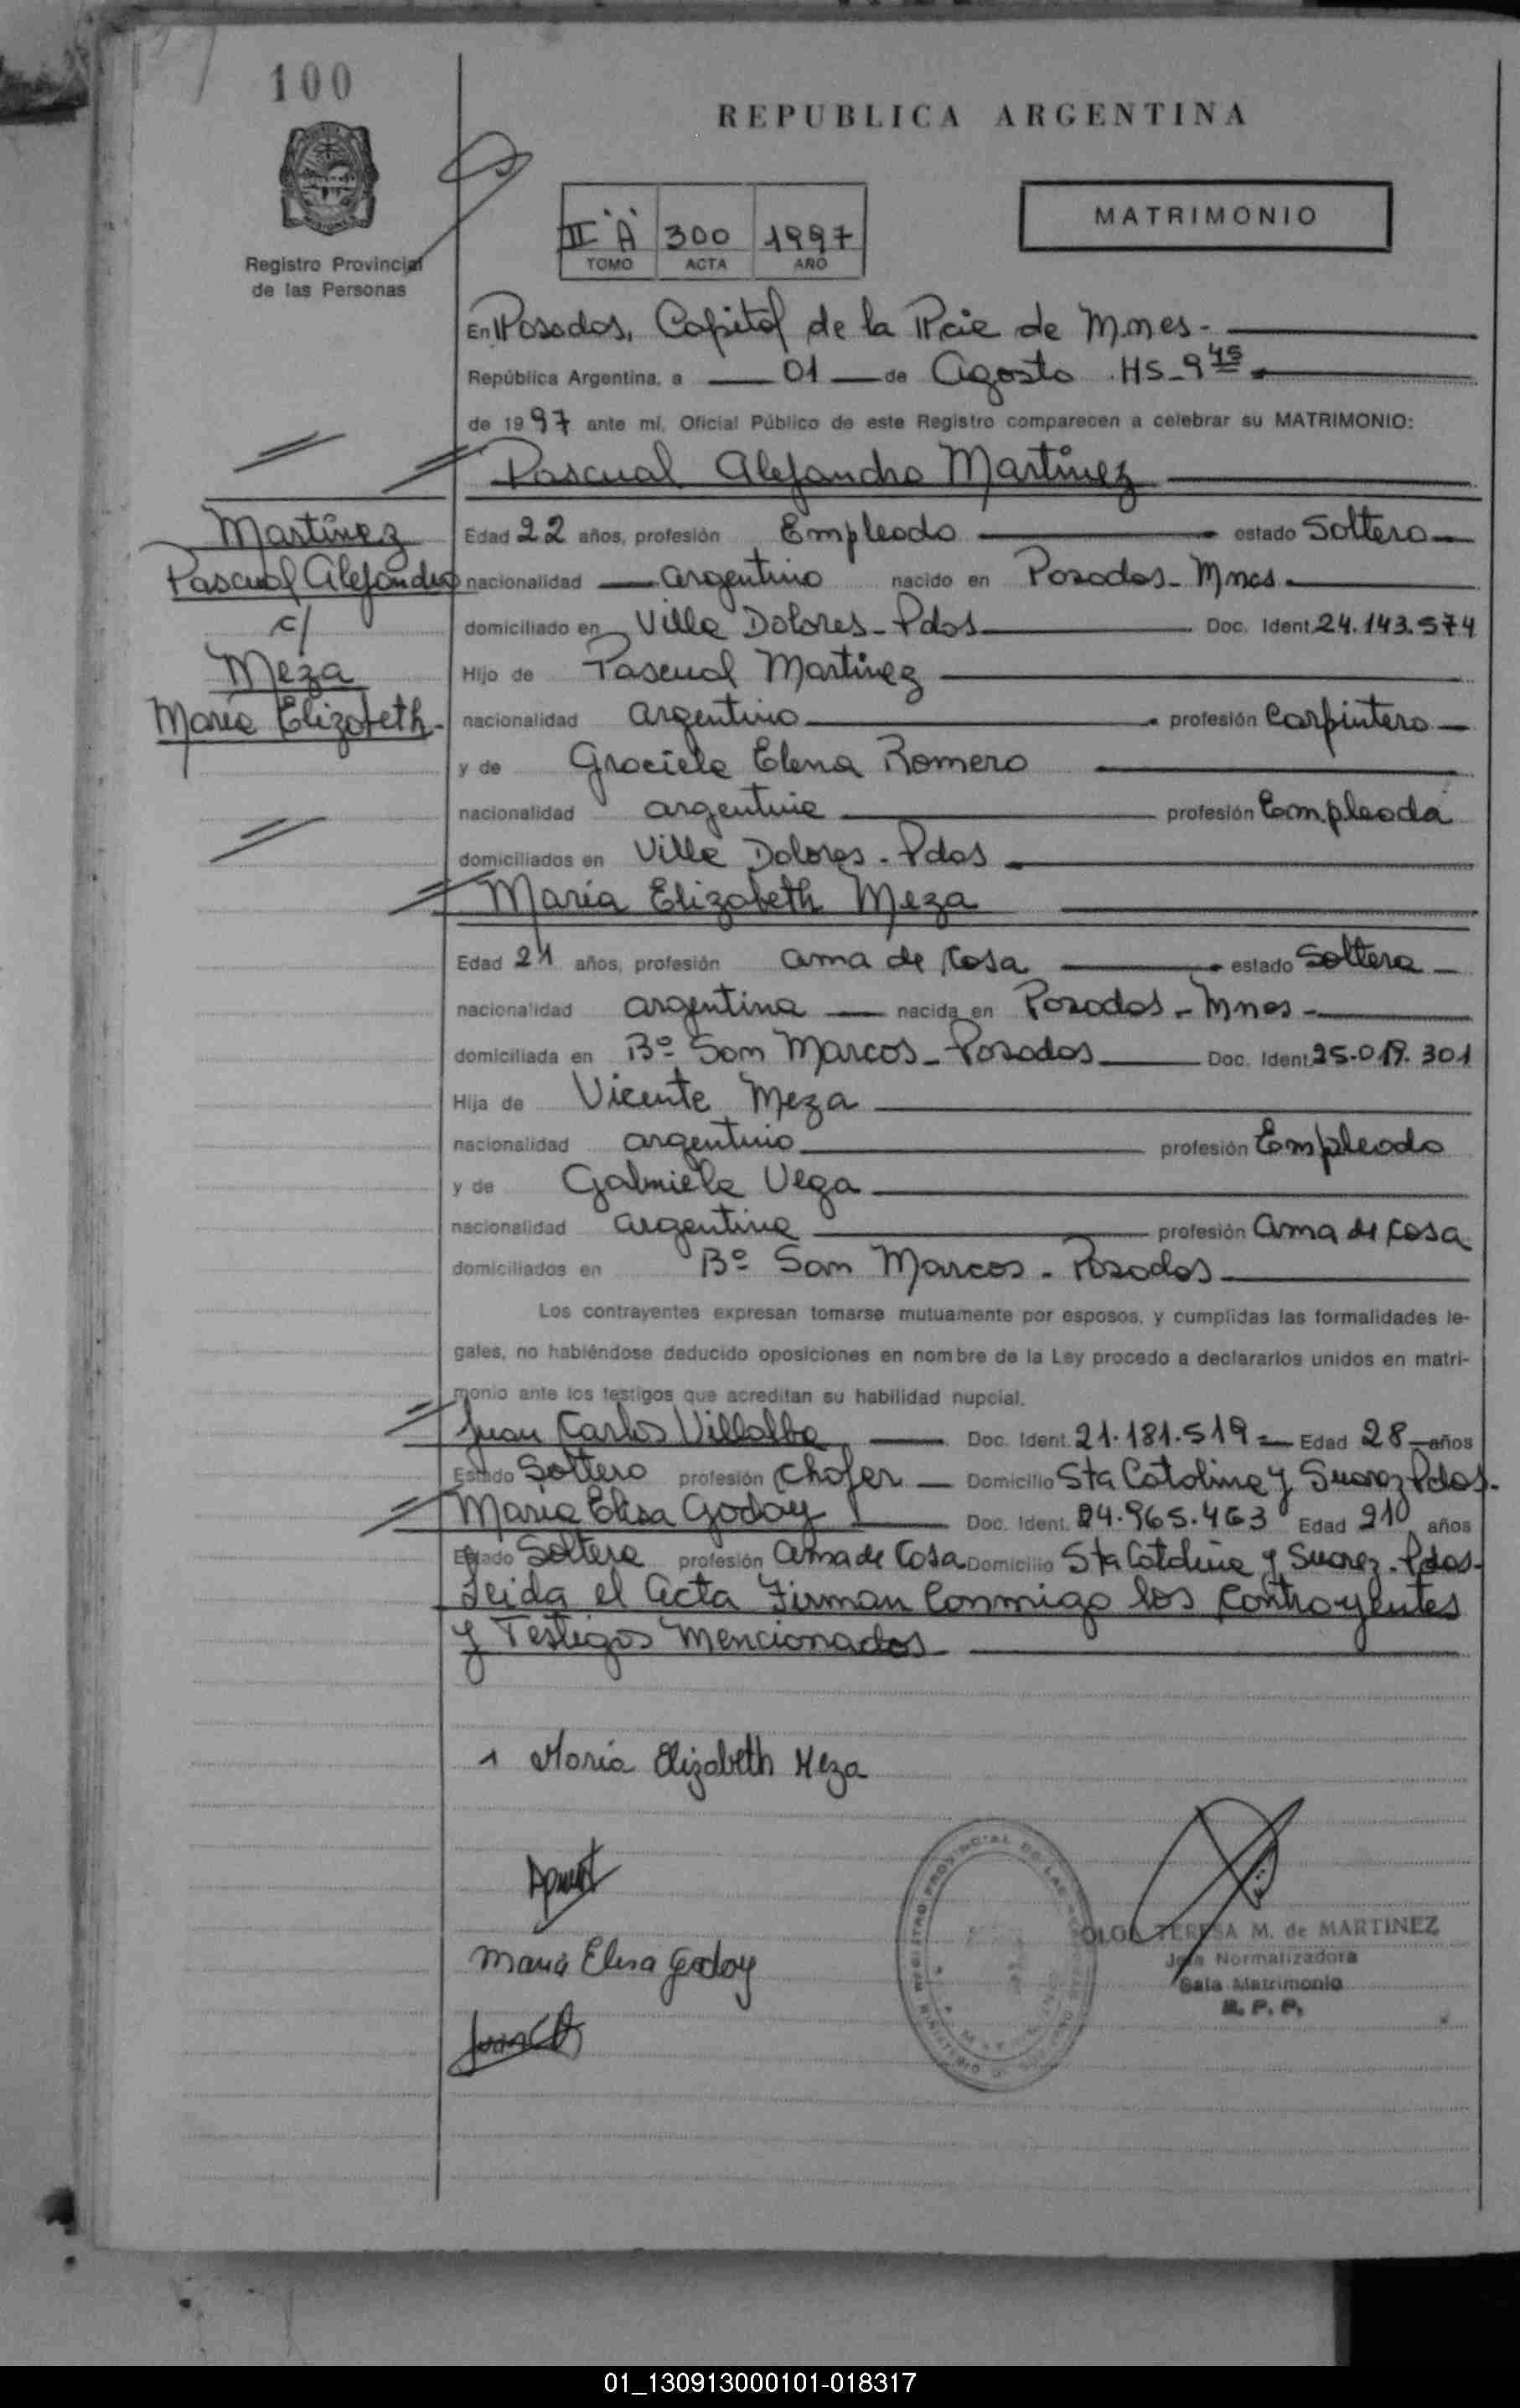 100
REPUBLICA ARGENTINA
Registro Provincial
de las Personas
II "A" 300 1997
TOMO ACTA AÑO
MATRIMONIO
En Posadas, Capital de la Pcie de Mnes.
República Argentina, a 01 de Agosto HS_9 45
de 1997 ante mí, Oficial Público de este Registro comparecen a celebrar su MATRIMONIO:
Pascual Alejandro Martínez
Martínez
Pascual Alejandro
c/
Meza
María Elizabeth
Edad 22 años, profesión Empleado estado Soltero
nacionalidad argentino nacido en Posadas - Mnes
domiciliado en Villa Dolores - Pdas Doc. Ident. 24.143.574
Hijo de Pascual Martínez
nacionalidad argentino profesión Carpintero
y de Graciela Elena Romero
nacionalidad argentina profesión Empleada
domiciliados en Villa Dolores - Pdas
María Elizabeth Meza
Edad 21 años, profesión ama de casa estado Soltera
nacionalidad argentina nacida en Posadas - Mnes
domiciliada en Bº San Marcos - Posadas Doc. Ident. 25.019.301
Hija de Vicente Meza
nacionalidad argentino profesión Empleado
y de Gabriela Vega
nacionalidad argentina profesión ama de casa
domiciliados en Bº San Marcos - Posadas
Los contrayentes expresan tomarse mutuamente por esposos, y cumplidas las formalidades le-
gales, no habiéndose deducido oposiciones en nombre de la Ley procedo a declararlos unidos en matri-
monio ante los testigos que acreditan su habilidad nupcial.
Juan Carlos Villalba Doc. Ident. 21.181.519 Edad 28 años
Estado Soltero profesión Chofer Domicilio Sta Catalina y Suarez Pdas.
María Elisa Godoy Doc. Ident. 24.965.463 Edad 21 años
Estado Soltera profesión Ama de Casa Domicilio Sta Catalina y Suarez. Pdas.
Leida el acta Firman Conmigo los Contrayentes
y Testigos Mencionados
María Elizabeth Meza
María Elisa Godoy
OLGA TERESA M. de MARTINEZ
Jefa Normatizadora
Sala Matrimonio
R. P. P.
01_130913000101-018317